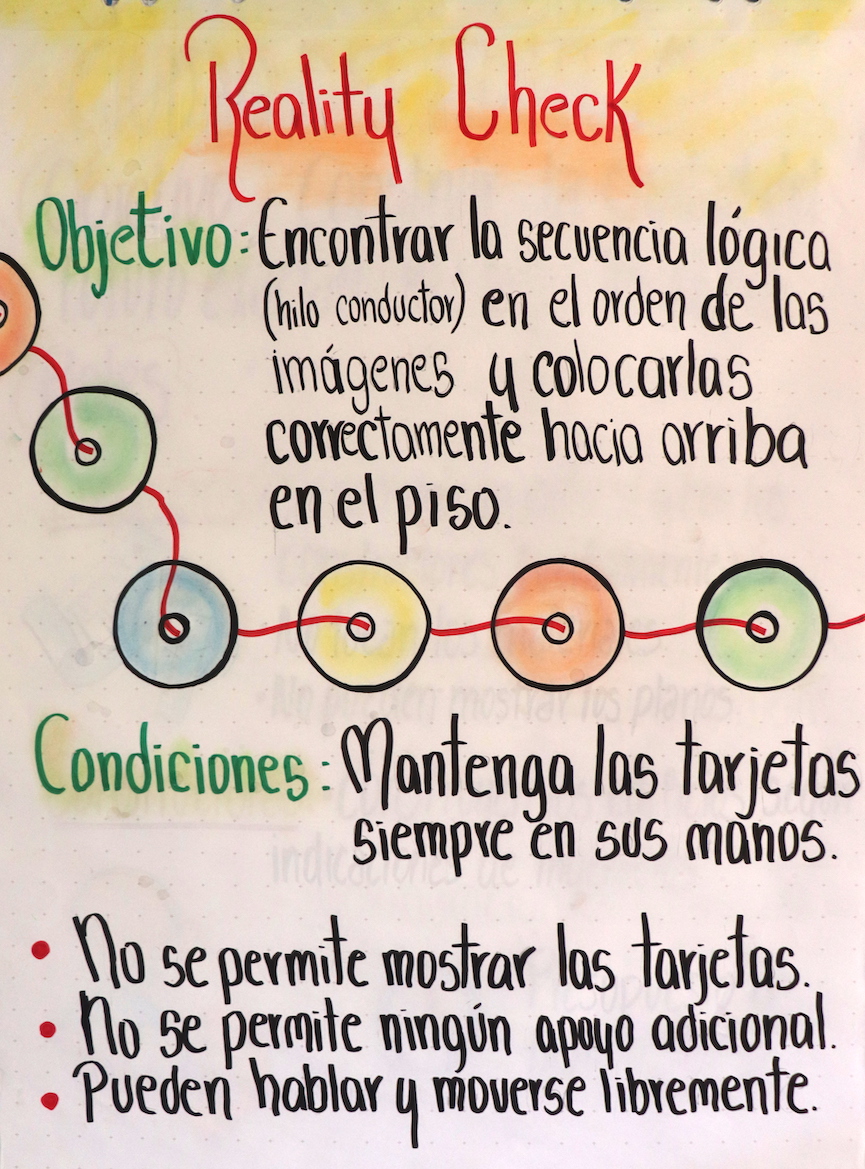 Reality Check
Objetivo: Encontrar la secuencia lógica
(hilo conductor) en el orden de las
imágenes y colocarlas
correctamente hacia arriba
en el piso.
Condiciones: Mantenga las tarjetas
siempre en sus manos.
• No se permite mostrar las tarjetas.
• No se permite ningún apoyo adicional.
• Pueden hablar y moverse libremente.